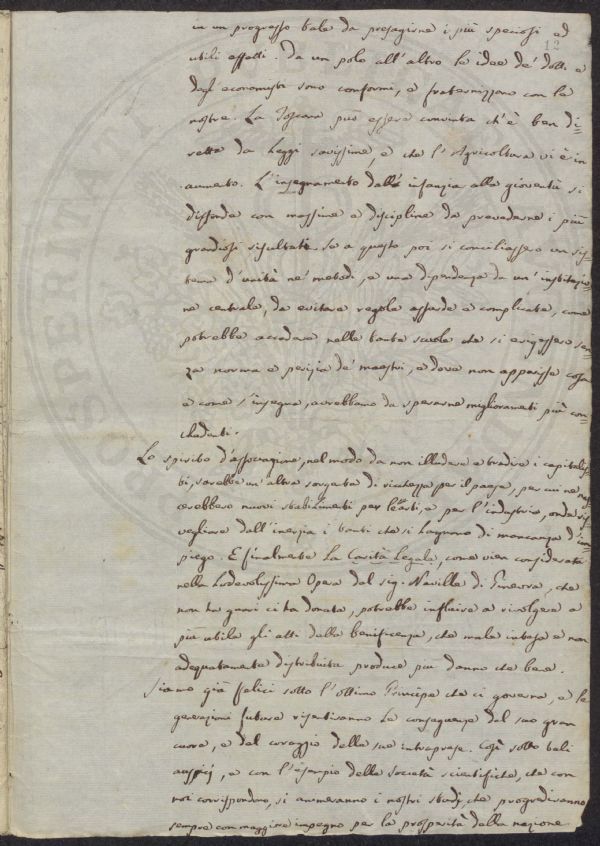 in un progresso tale da presagirne i più speciosi ed
12
utili effetti. Da un polo all'altro le idee de' dotti e
degl'economisti sono conformi, e fraternizzono con le
nostre. La Toscana può essere convinta ch'è ben di=
retta da Leggi savissime, e che l'Agricoltura vi è in
aumento. L'insegnamento dall'infanzia alla gioventù si
diffonde con massime e discipline da prevederne i più
grandiosi risultati. Se a questo poi si conciliassero un sis=
tema d'unità ne' metodi, e una dipendenza da un'instituzio=
ne centrale, da evitare regole assurde e complicate, come
potrebbe accadere nelle tante scuole che si erigessero sen=
za norma e perizia de' maestri, e dove non apparisse cosa
e come s'insegna, avrebbamo da sperarne miglioramenti più con=
cludenti.
Lo spirito d'associazione, nel modo da non illudere e tradire i capitalis=
ti, sarebbe un'altra sorgente di ricchezza per il paese, per cui ne nas=
cerebbero nuovi stabilimenti per le arti, e per l'industria, onde ris=
vegliare dall'inerzia i tanti che si lagnano di mancanza d'im=
piego. E finalmente La Carità Legale, come vien considerata
nella Lodevolissima Opera del sig. Naville di Ginevra, che
non ha guari ci ha donata, potrebbe influire a rivolgere a
più utile gli atti della beneficenza, che male intesa e non
adequatamente distribuita produce più danno che bene.
Siamo già felici sotto l'ottimo Principe che ci governa, e le
generazioni future risentiranno le conseguenze del suo gran
cuore, e del coraggio delle sue intraprese. Così sotto tali
auspicj, e con l'esempio delle Società scientifiche, che con
noi corrispondono, si animeranno i nostri studj, che progrediranno
sempre con maggiore impegno per la prosperità della nazione
PROSPERITATI